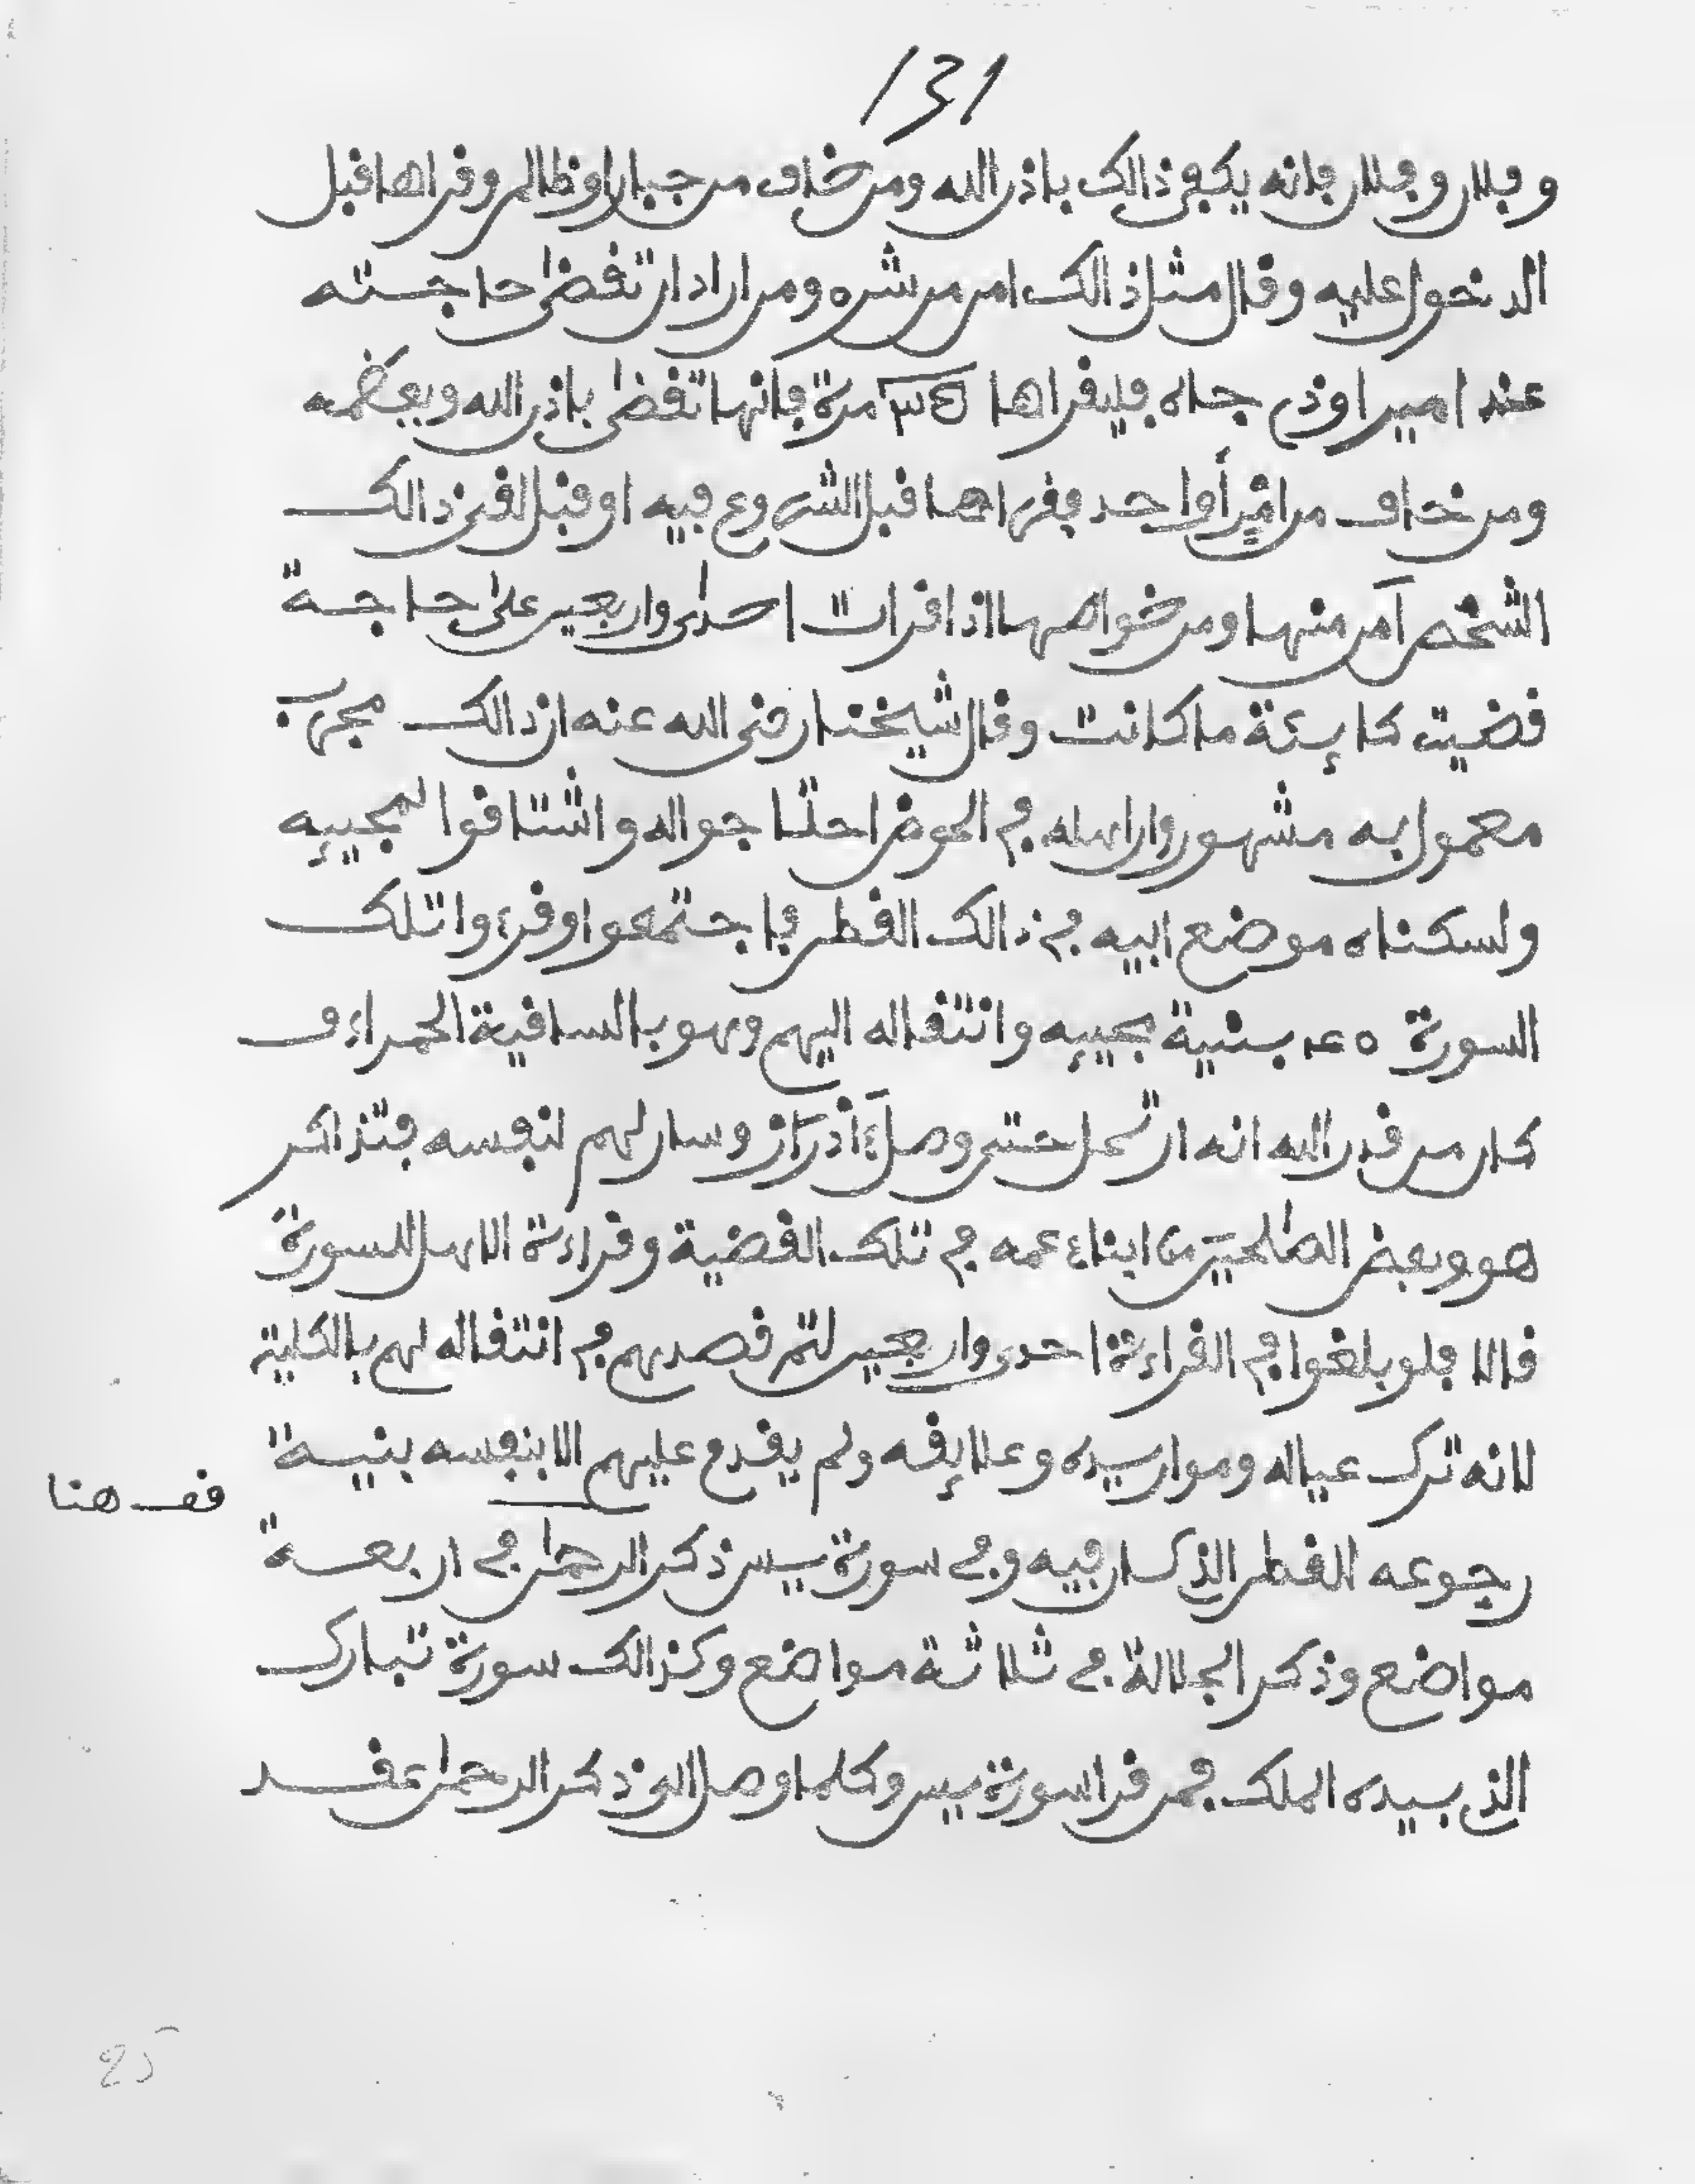 131
وفلان وفلان فانه يكفى ذالك باذن الله ومن خاف من جبار اوظالم وقراها قبل
الدخول عليه وقال مثل ذالك امن من شره ومن اراد ان تقضى حاجته
عند امير اوذى جاه فليقراها مرة فانها تقضى باذن الله ويعظمه
ومن خاف من امر أواحد فقراها قبل الشروع فيه او قبل لقى ذالك
الشخص آمن منها ومن خواصها اذا قرات احدى واربعين على حاجة
قضيت كاينة ما كانت وقال شيخنا رضى الله عنه ان ذالك مجرب
معمول به مشهور وان اهله فى الحوض احتاجو اله واشتاقوا لمجييه
ولسكناه موضع ابيه فى ذالك القطر فاجتمعوا وقرءوا تلك
السورة بنية مجييه وانتقاله اليهم وهو بالساقية الحمراء و
كان من قدر الله انه ارتحل حتى وصل ءادرار وسار لهم لنفسه فتذاكر
هو وبعض الصلحين من ابناء عمه فى تلك القضية وقراءة الاهل للسورة
قالا فلو بلغوا فى القراءة احدى واربعين لتم قصدهم فى انتقاله لهم بالكلية
لانه ترك عياله ومواريده وعلايقه ولم يقدم عليهم الا بنفسه بنية
قف هنا
رجوعه للقطر الذى كان فيه وفى سورة يس ذكر الرحمن فى اربعة
مواضع وذكر الجلالة فى ثلاثة مواضع وكذالك سورة تبارك
الذى بيده الملك فمن قرا سورة يس وكلما وصل الى ذكر الرحمن عقد
25